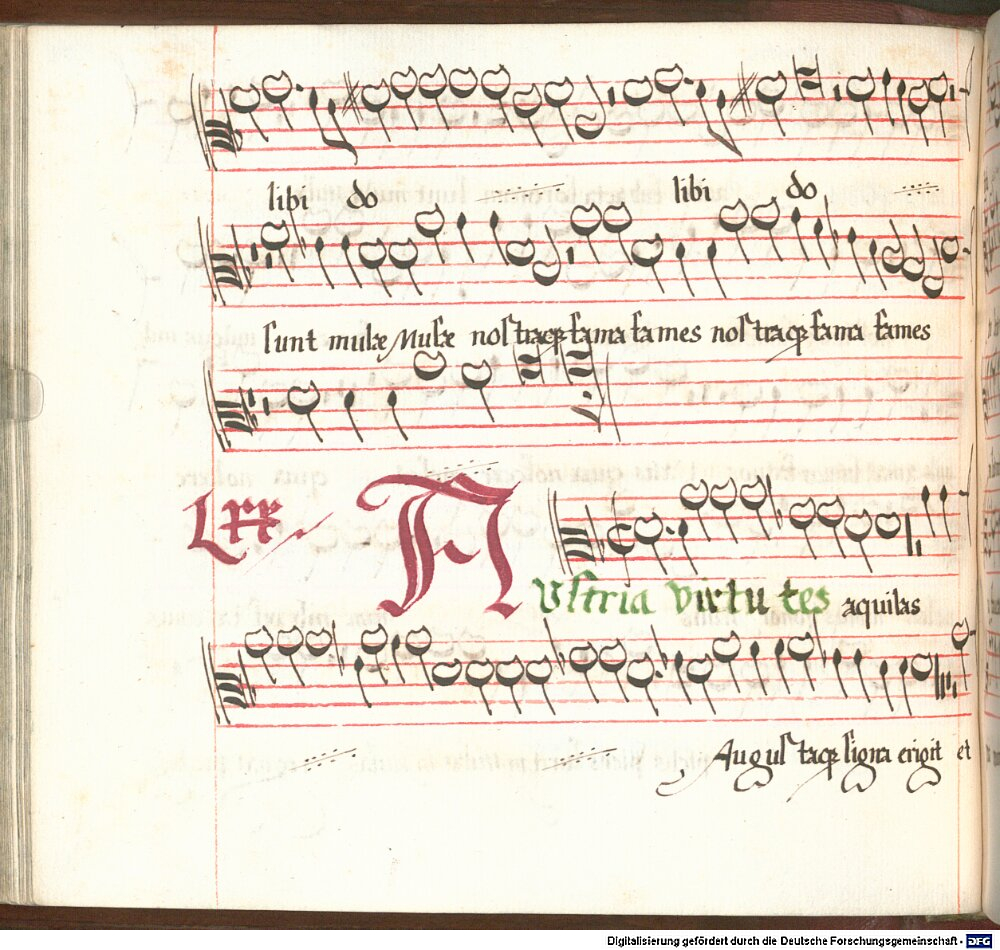 libi do libi do
sunt musæ Musæ nostraqꝫ fama fames nostraqꝫ fama fames
Lxx
AVstria virtutes aquilas
Augustaqꝫ signa erigit et
Digitalisierung gefördert durch die Deutsche Forschungsgemeinschaft - DFG